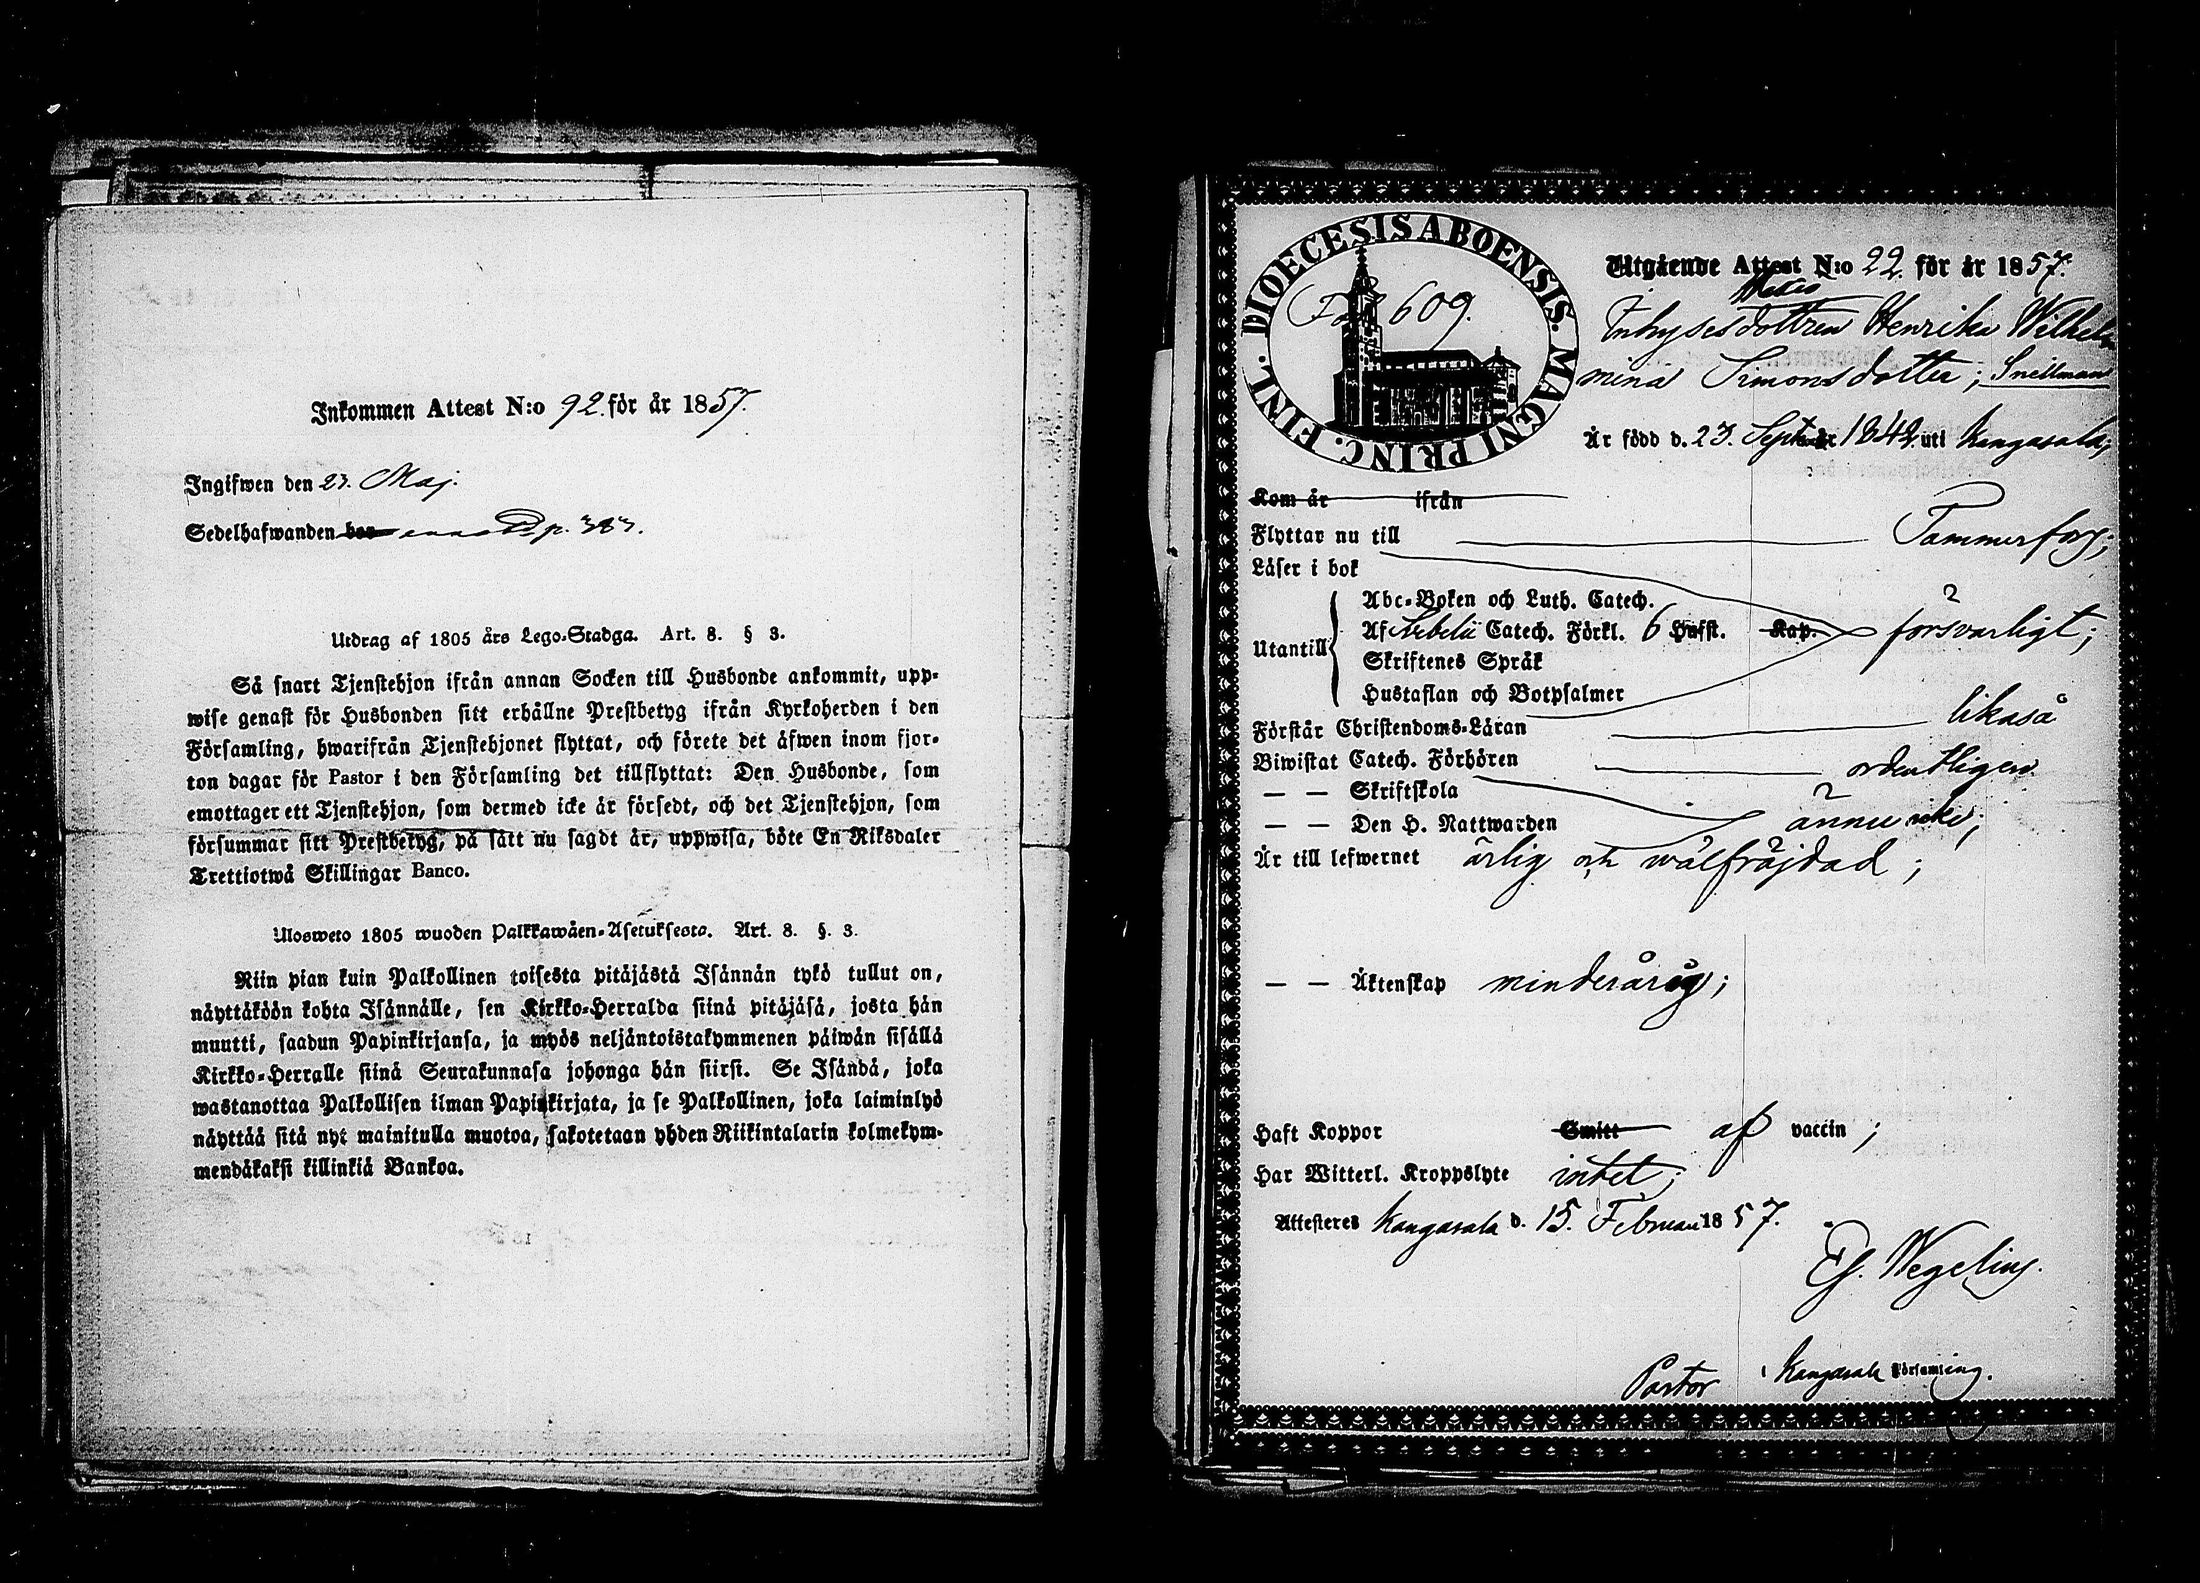 Inkommen Attest N:o 92. för år 1857.
Ingifwen den 23. Maj.
Sedelhafwanden bor p. 383.
Utdrag af 1805 års Lego-Stadga. Art. 8. § 3.
Så snart Tjenstehjon ifrån annan Socken till Husbonde ankommit, upp-
wise genast för Husbonden sitt erhållne Prestbetyg ifrån Kyrkoherden i den
Församling, hwarifrån Tjenstehjonet flyttat, och förete det äfwen inom fjor-
ton dagar för Pastor i den Församling det tillflyttat: Den Husbonde, som
emottager ett Tjenstehjon, som dermed icke är försedt, och det Tjenstehjon, som
försummar sitt Prestbetyg, på sätt nu sagdt är, uppwisa, böte En Riksdaler
Trettiotwå Skillingar Banco.
Ulosweto 1805 wuoden Palkkawäen-Asetuksesta. Art. 8. §. 3.
Niin pian kuin Palkollinen toisesta pitäjästä Isännän tykö tullut on,
näyttäköön kohta Isännälle, sen Kirkko-Herralda siinä pitäjäsä, josta hän
muutti, saadun Papinkirjansa, ja myös neljäntoistakymmenen päiwän sisällä
Kirkko-Herralle siinä Seurakunnasa johonga hän siirsi. Se Isändä, joka
wastanottaa Palkollisen ilman Papinkirjata, ja se Palkollinen, joka laiminlyö
näyttää sitä nyt mainitulla muotoa, sakotetaan yhden Riikintalarin kolmekym-
mendäkaksi killinkiä Bankoa.
DIOECESIS ABOENSIS. MAGNI PRINC. FINL.
Fol 609.
Utgående Attest N:o 22. för år 1857.
Inhysesdottren Henrika Wilhel-
mina Simonsdotter; Snellman
Är född d. 23. Septemb 1842. uti Kangasala,
Kom år ifrån
Flyttar nu till Tammerfors;
Läser i bok
Utantill
Abc-Boken och Luth. Catech.
Af Svebelii Catech. Förkl. 6 Hufst. Kap. försvarligt;
Skriftenes Språk
Hustaflan och Botpsalmer
Förstår Christendoms-Läran likaså
Biwistat Catech. Förhören ordentligen
— — Skriftskola
— — Den H. Nattwarden ännu icke;
Är till lefwernet ärlig och wälfräjdad;
— — Äktenskap minderårig;
Haft Koppor Smitt af vaccin;
Har Witterl. Kroppslyte intet;
Attesteres Kangasala d. 15. Februari 1857.
Ef. Wegelius.
Pastor i Kangasala Församling.